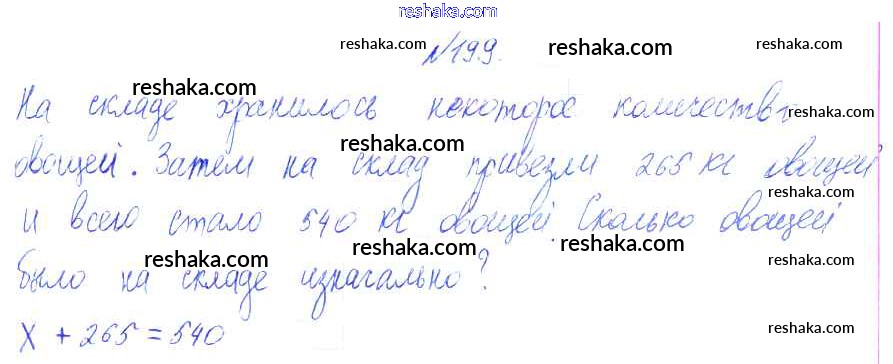 reshaka.com
№199. reshaka.com reshaka.com
На складе хранилось некоторое количество reshaka.com reshaka.com
овощей. Затем на склад привезли 265 кг овощей reshaka.com
и всего стало 540 кг овощей. Сколько овощей reshaka.com
reshaka.com reshaka.com reshaka.com
было на складе изначально? reshaka.com
x + 265 = 540 reshaka.com